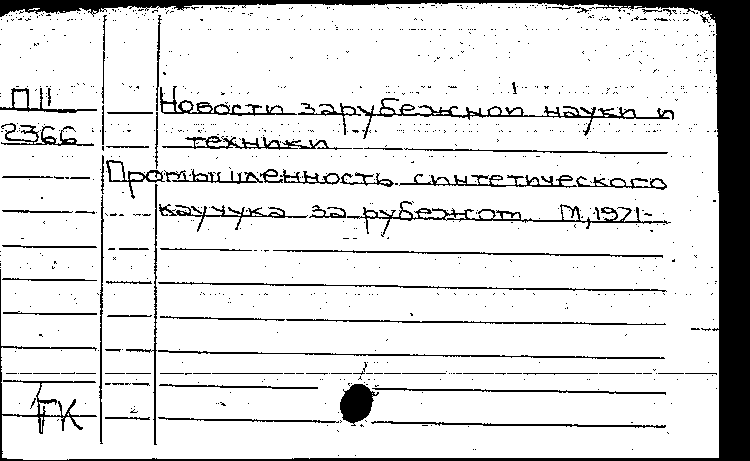 П II
2366
Новости зарубежной науки и
техники
Промышленность синтетического
каучука за рубежом. М, 1971-
ГК